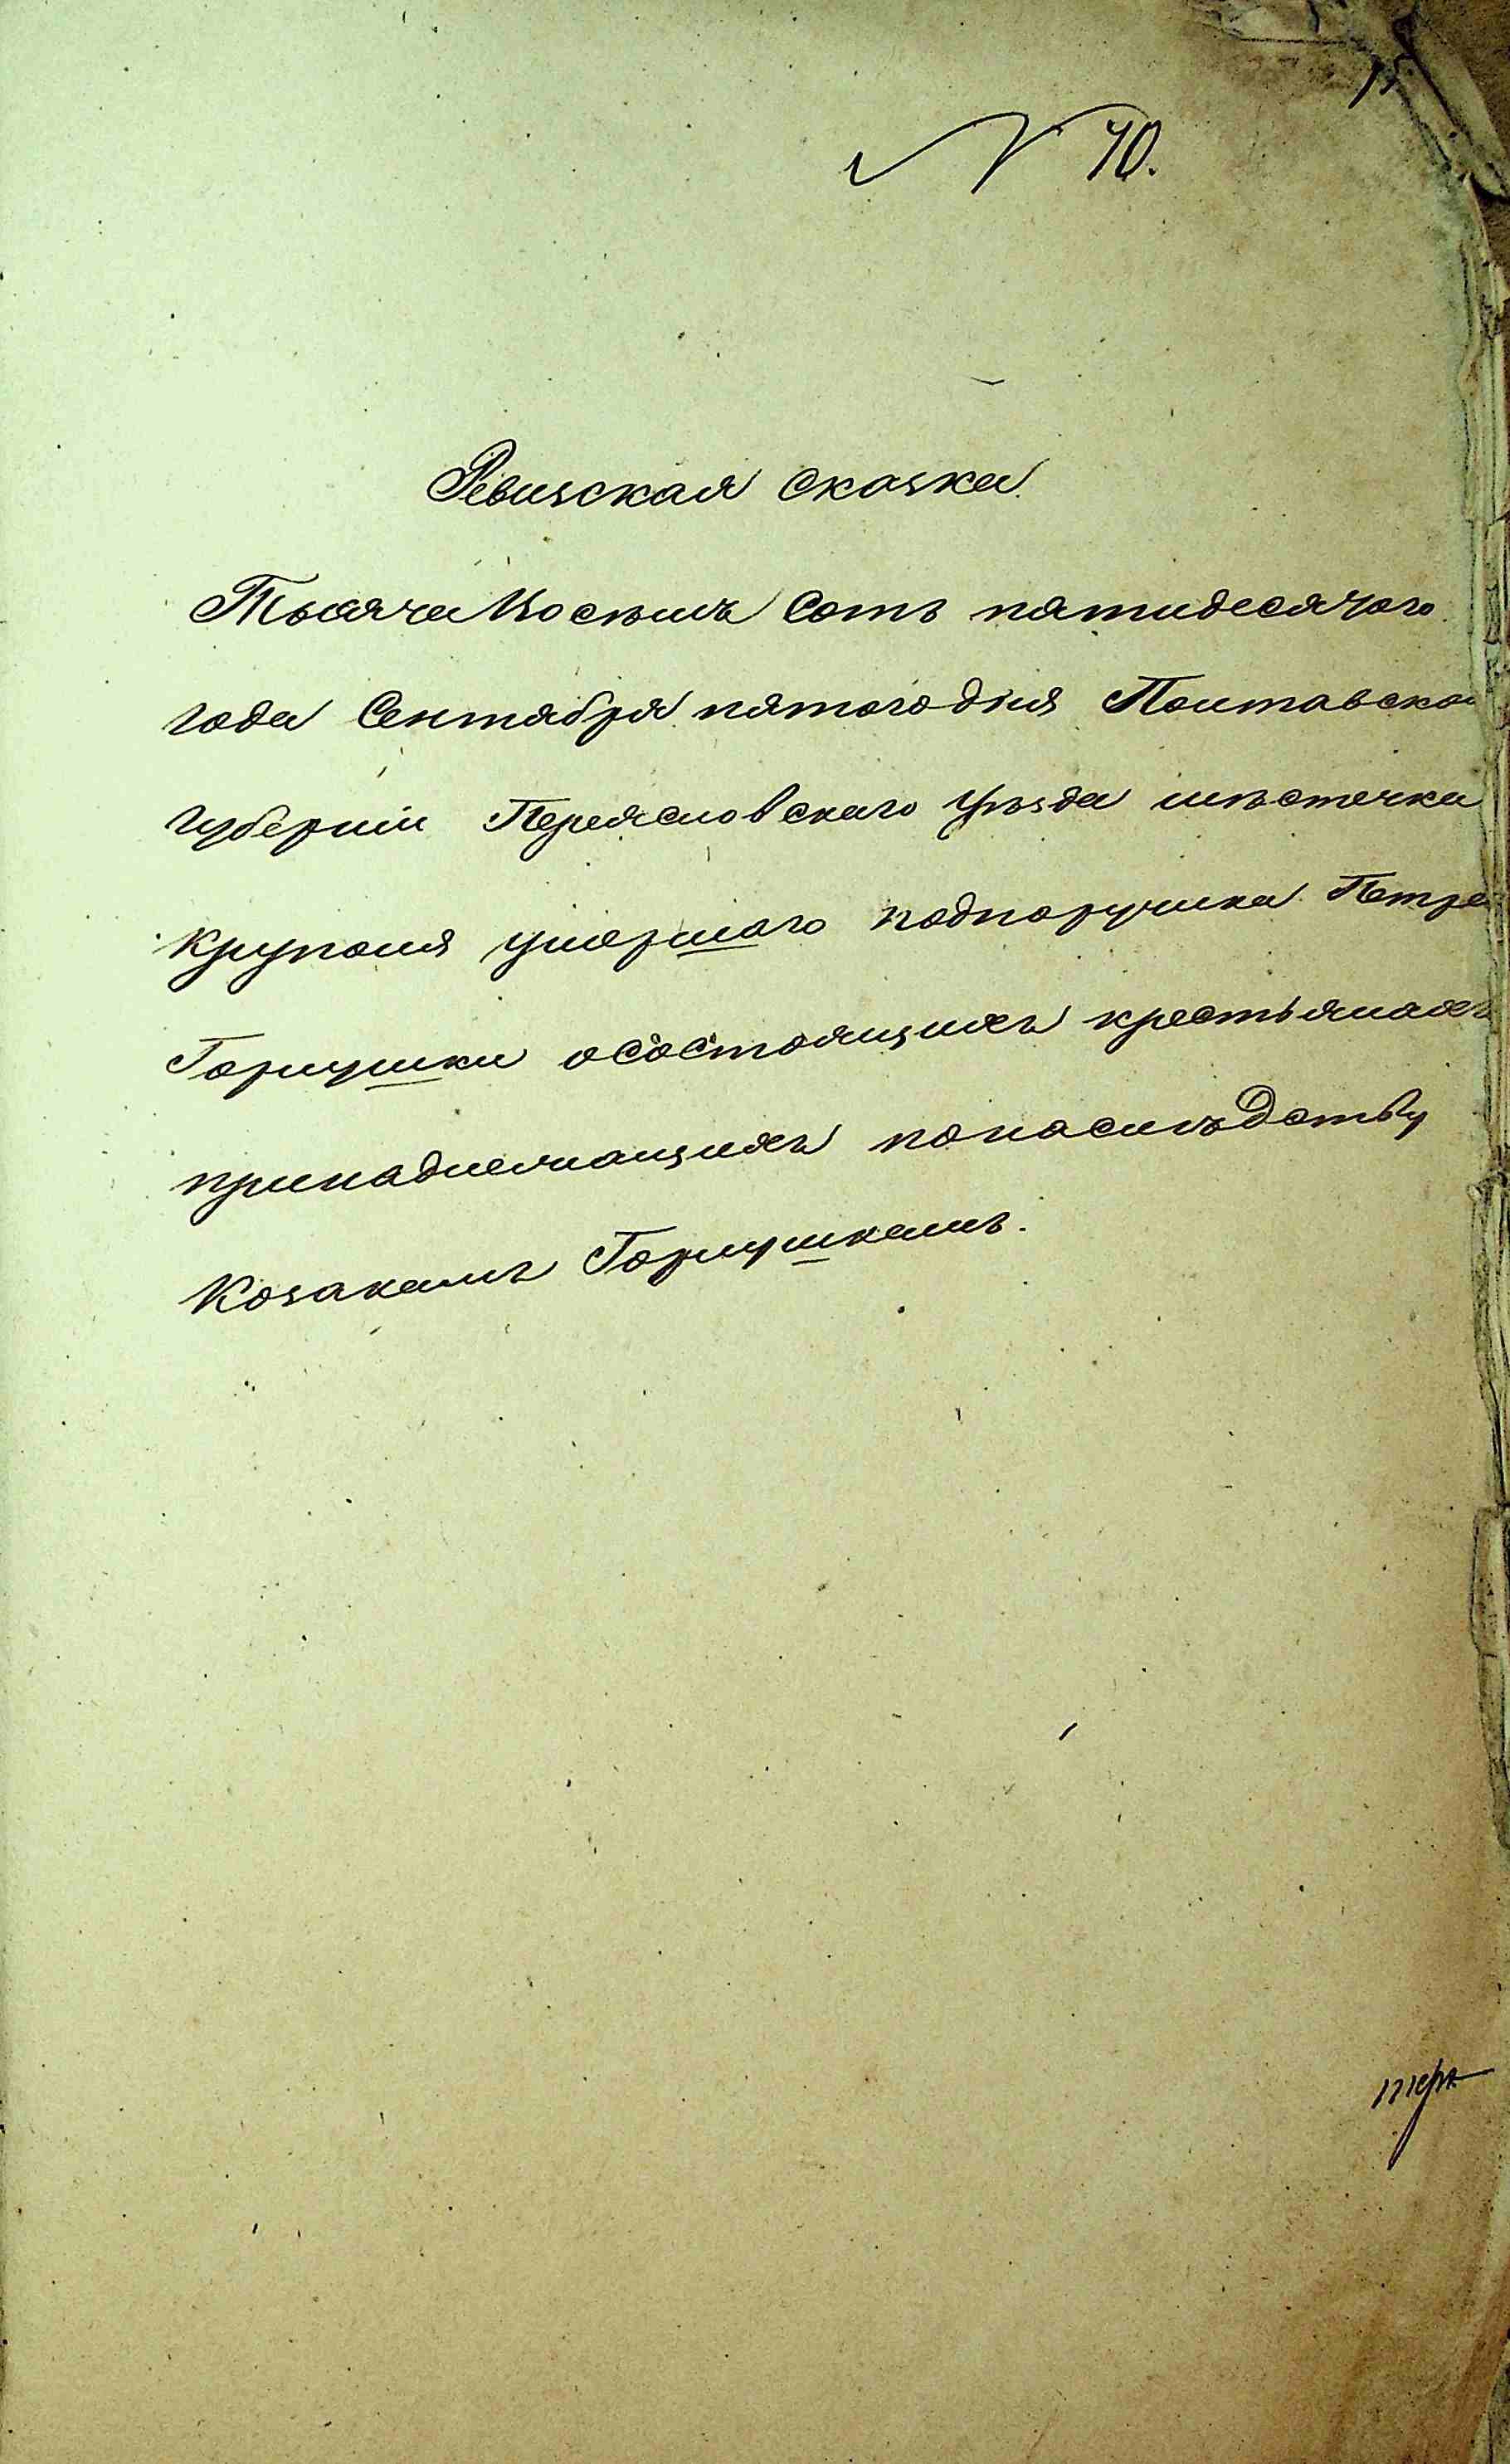 15
№ 40.
Ревизская сказка
Тысяча Восемь Сотъ пятидесятого
года Сентября пятого дня Полтавской
губерніи Переясловскаго уѣзда мѣстечка
Крупполя умершаго подпоручика Петра
Гориушки осостоящихъ крестьянахъ
принадлежащихъ понаслѣдству
Козакамъ Гориушкамъ.